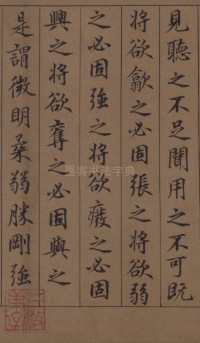 見聽之不足聞用之不可既
将欲歙之必固張之将欲弱
之必固強之将欲廢之必固
興之将欲奪之必固與之
是謂微明柔弱勝剛強